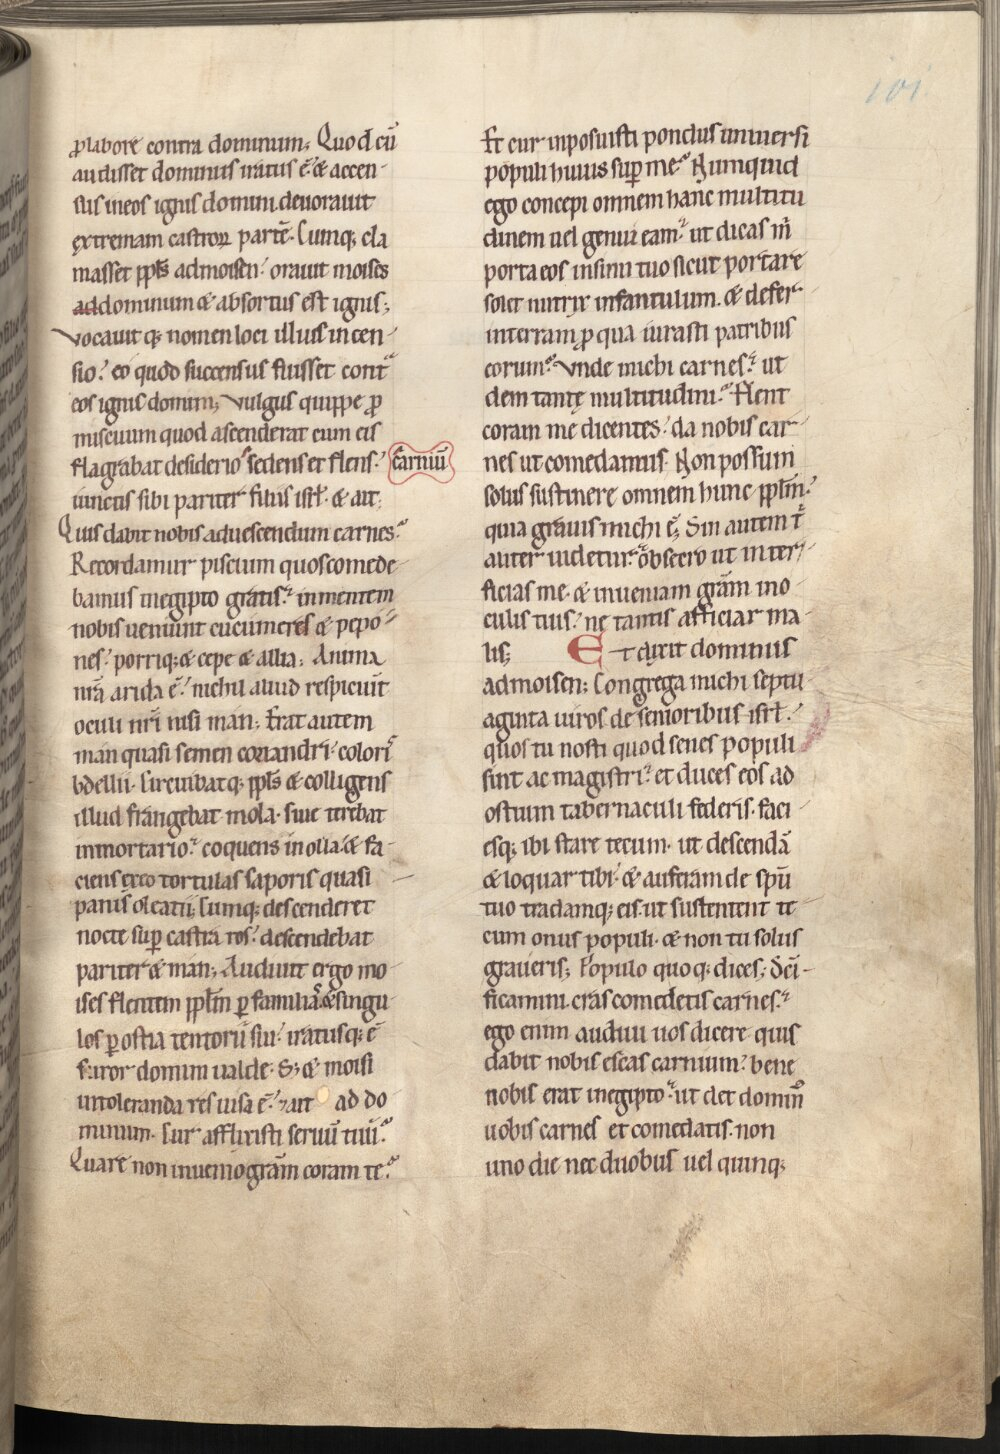 101
ꝓlabore contra dominum; Quod cū
audisset dominus iratus ē & accen-
sus ineos ignis domini deuorauit
extremam castroꝝ partē. Cumq; cla
masset ppls̄ admoisen: orauit moises
addominum & absortus est ignis;
vocauit q; nomen loci illius incen-
sio: eo quod succensus fuisset cont
eos ignis domini; Vulgus quippe ꝓ
miscuum quod ascenderat cum eis
flagrabat desiderio sedens et flens: carniū
iunctis sibi pariter filiis isrl̄. & ait;
Quis dabit nobis aduescendum carnes?
Recordamur piscium quos comede-
bamus inegipto gratis: inmentem
nobis ueniunt cucumeres & pepo-
nes: porriq; & cepe & allia; Anima
nr̄a arida ē: nichil aliud respiciūt
oculi nr̄i nisi man; Erat autem
man quasi semen coriandri: coloris
bdellii. Circuibatq; ppls̄ & colligens
illud frangebat mola. siue terebat
inmortario: coquens inolla. & fa-
ciens exeo tortulas saporis quasi
panis oleati; Cumq; descenderet
nocte suꝑ castra ros: descendebat
pariter & man; Audiuit ergo mo-
ises flentem ppl̄m ꝑ familias & singu-
los ꝑ ostia tentorii sui: iratusq; ē
furor domini ualde. S; & moisi
intoleranda res uisa ē: ⁊ ait ad do-
minum. Cur afflixisti seruū tuū?
Quare non inuenio grām coram te?
Et cur inposuisti pondus uniuersi
populi huius suꝑ me? Numquid
ego concepi omnem hanc multitu
dinem uel genui eam: ut dicas m̄
porta eos insinu tuo sicut portare
solet nutrix infantulum. & defer
interram ꝓ qua iurasti patribus
eorum? Vnde michi carnes: ut
dem tantę multitudini? Flent
coram me dicentes: da nobis car-
nes ut comedamus. Non possum
solus sustinere omnem hunc ppl̄m:
quia grauis michi ē; Sin autem t̄
auter uidetur: obsecro ut inter-
ficias me. & inueniam grām ino-
culis tuis: ne tantis afficiar ma-
lis; Et dixit dominus
admoisen; Congrega michi septu-
aginta uiros de senioribus isrl̄:
quos tu nosti quod senes populi
sint ac magistri: et duces eos ad
ostium tabernaculi federis. faci
esq; ibi stare tecum. ut descendā
& loquar tibi. & auferam de spū
tuo tradamq; eis. ut sustentent te
cum onus populi. & non tu solus
graueris; Populo quoq; dices; Scī-
ficamini. cras comedetis carnes:
ego enim audiui uos dicere quis
dabit nobis escas carnium: bene
nobis erat inegipto: ut det domin
uobis carnes et comedatis. non
uno die nec duobus uel quinq;